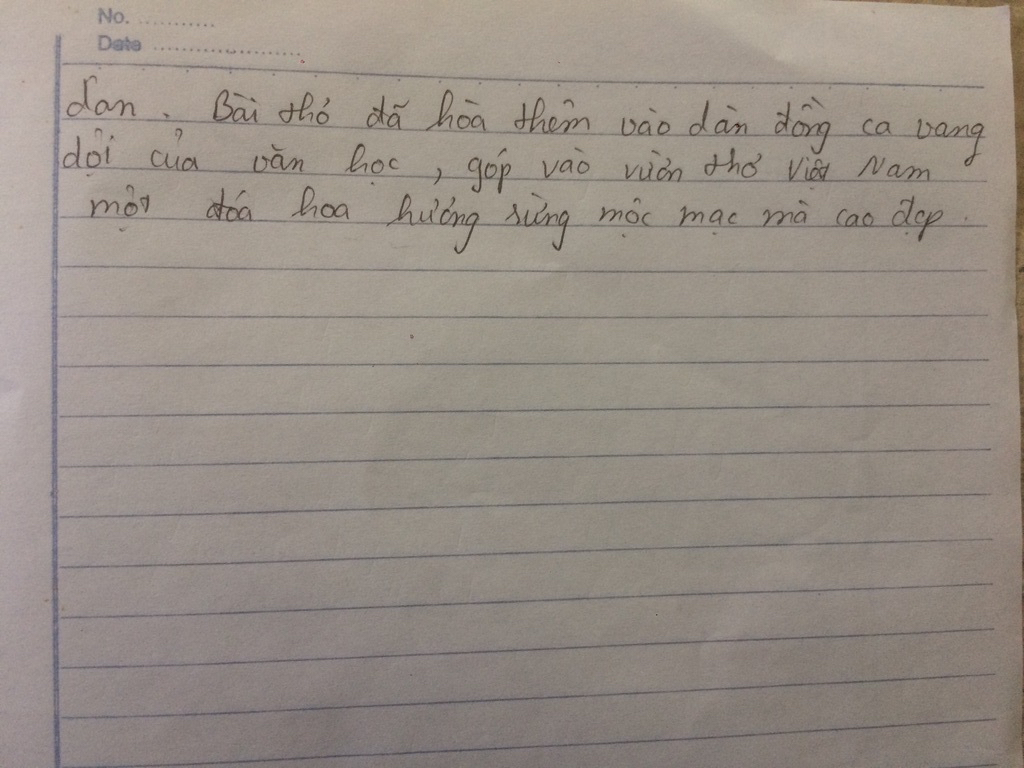 No. ............
Date ......................
dan. Bài thơ đã hòa thêm vào dàn đồng ca vang
dội của văn học, góp vào vườn thơ Việt Nam
một đóa hoa hương rừng mộc mạc mà cao đẹp.